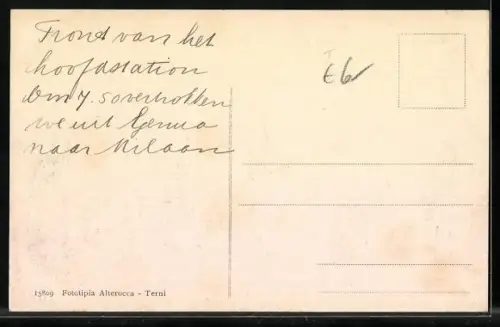 Front van het
hoofdstation
Om 7.50 vertrokken
we uit Genua
naar Milaan
£6
15809 Fototipia Alterocca - Terni